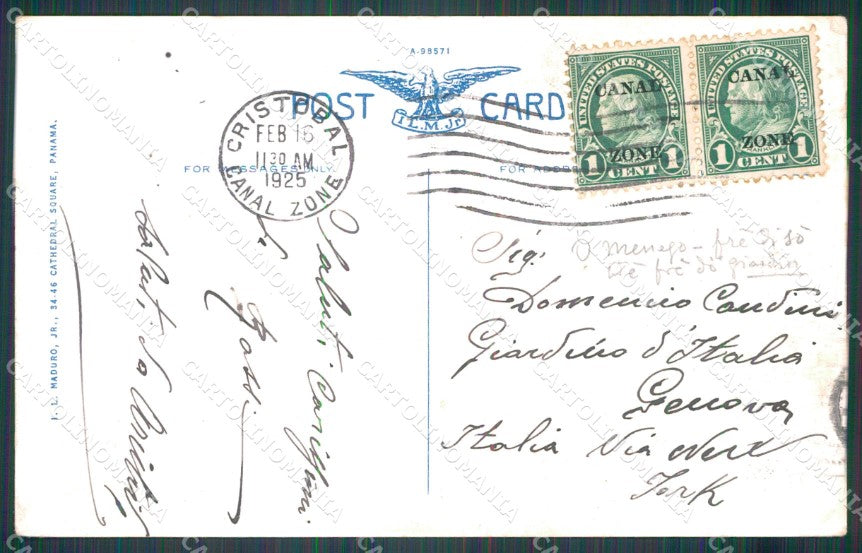 A-98571
POST CARD
I.L.M.Jr.
FOR MESSAGES ONLY.
FOR ADDRESS
CRISTOBAL
FEB 16
11 30 AM
1925
CANAL ZONE
UNITED STATES POSTAGE
CANAL
ZONE
1 CENT 1
UNITED STATES POSTAGE
CANAL
ZONE
1 CENT 1
I. L. MADURO, JR., 34-46 CATHEDRAL SQUARE, PANAMA.
Saluti carissimi
da
Rossi
Sig:
Domenico
Giardino d'Italia
Genova
Italia Via New
York
CARTOLINOMANIA